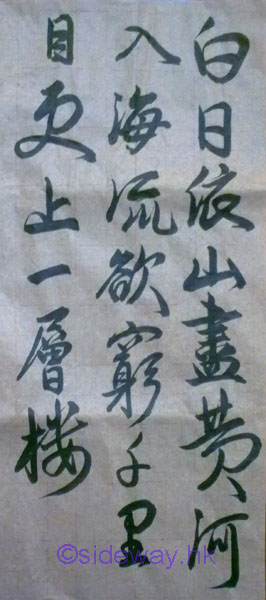 白日依山盡黄河
入海流欲窮千里
目更上一層樓
©sideway.hk